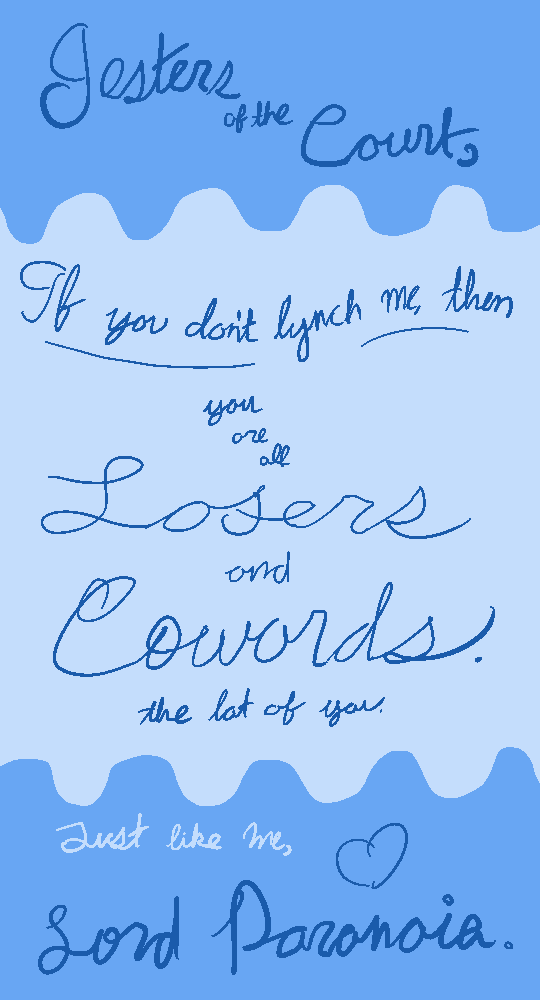 Jesters
of the
Court,
If you don't lynch me, then
you
are
all
Losers
and
Cowards.
the lot of you.
Just like me,
Lord Paranoia.